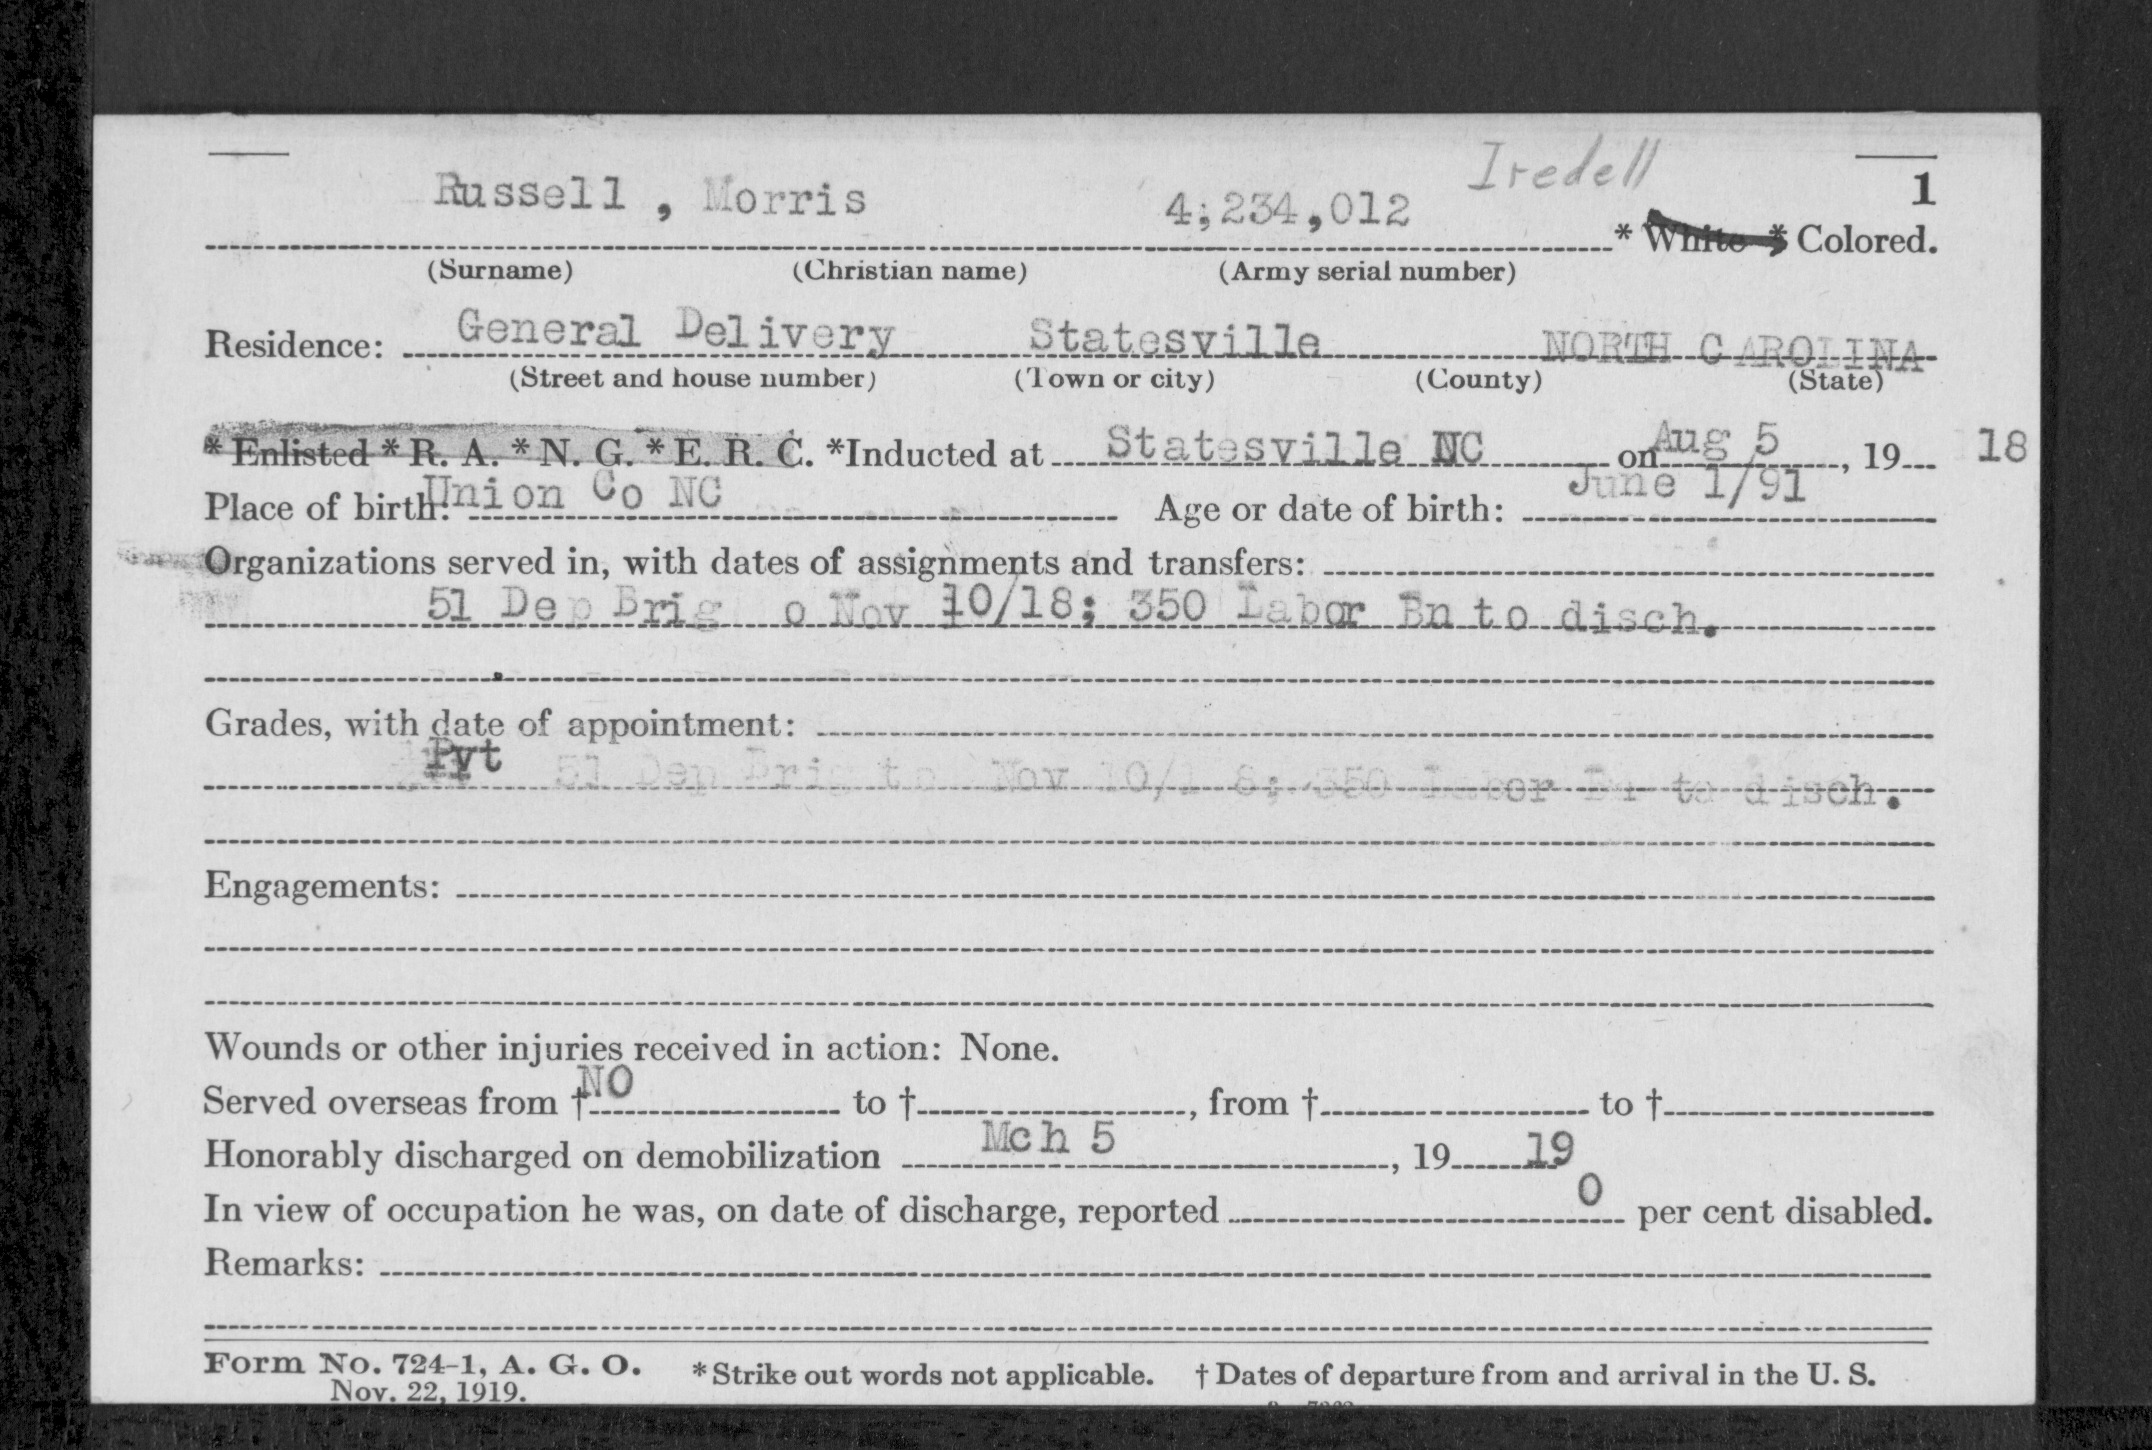 Iredell
Russell , Morris 4;234,012 1
* White * Colored.
(Surname) (Christian name) (Army serial number)
General Delivery Statesville NORTH CAROLINA
Residence:
(Street and house number) (Town or city) (County) (State)
* Enlisted * R. A. * N. G. * E. R. C. *Inducted at Statesville NC on Aug 5, 19 18
Place of birth: Union Co NC Age or date of birth: June 1/91
Organizations served in, with dates of assignments and transfers:
51 Dep Brig o Nov 10/18; 350 Labor Bn to disch.
Grades, with date of appointment:
Pvt 51 Dep Brig to Nov 10/1 8; 350 Labor Bn to disch.
Engagements:
Wounds or other injuries received in action: None.
Served overseas from † NO to †, from † to †
Honorably discharged on demobilization Mch 5, 19 19
In view of occupation he was, on date of discharge, reported 0 per cent disabled.
Remarks:
Form No. 724-1, A. G. O. * Strike out words not applicable. † Dates of departure from and arrival in the U. S.
Nov. 22, 1919.